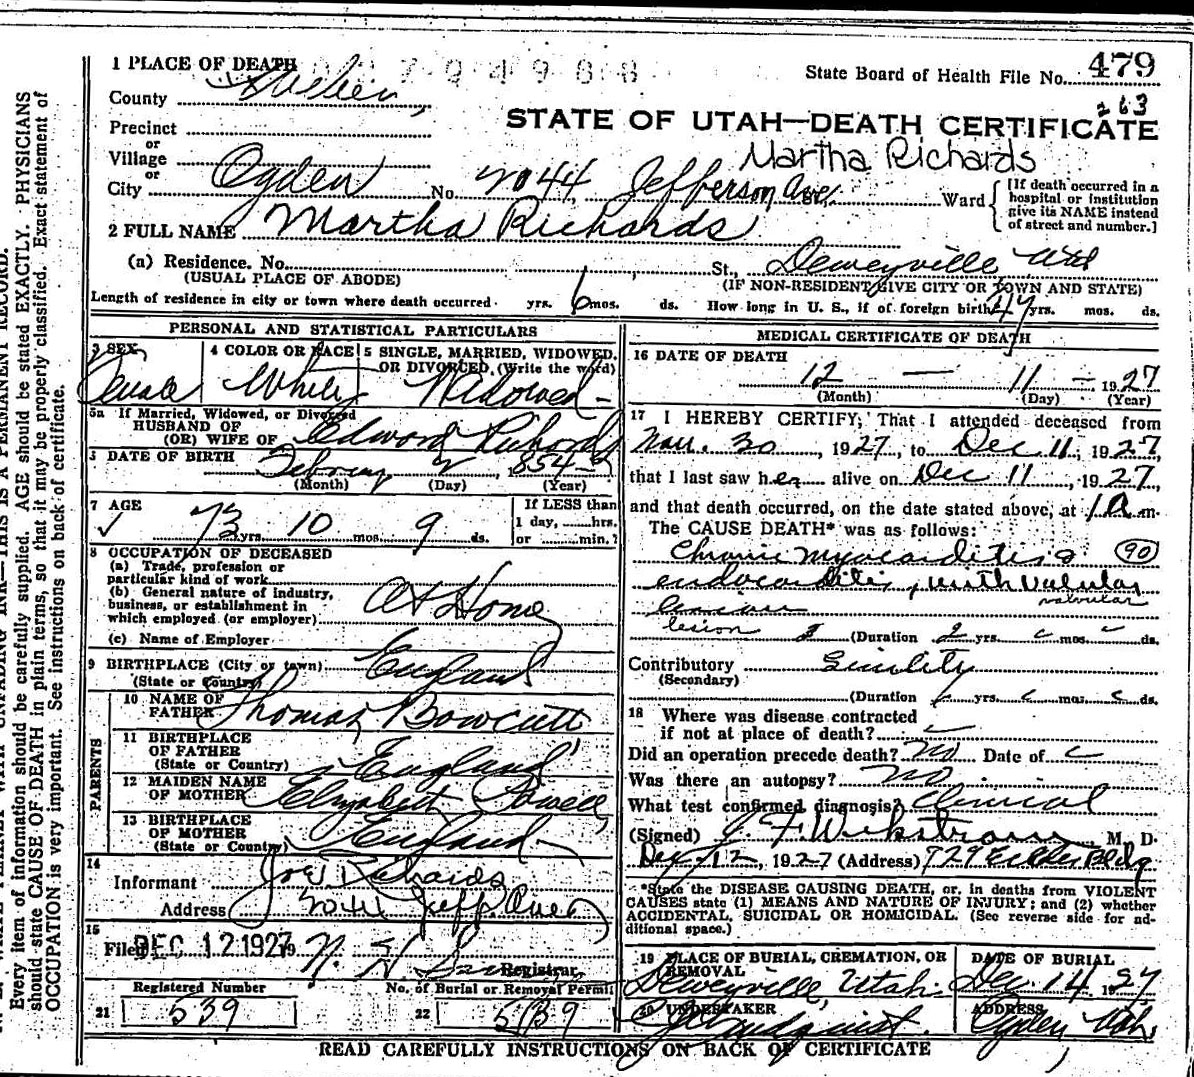 1 PLACE OF DEATH
State Board of Health File No. 479
County Weber,
263
STATE OF UTAH—DEATH CERTIFICATE
Precinct
or
Village
Martha Richards
or
City Ogden No. 2044 Jefferson Ave. St. Ward
[If death occurred in a
hospital or institution
give its NAME instead
of street and number.]
2 FULL NAME Martha Richards
(a) Residence. No. St., Deweyville Utah
(USUAL PLACE OF ABODE) (IF NON-RESIDENT GIVE CITY OR TOWN AND STATE)
Length of residence in city or town where death occurred yrs. 6 mos. ds. How long in U. S., if of foreign birth? yrs. mos. ds.
PERSONAL AND STATISTICAL PARTICULARS
3 SEX 4 COLOR OR RACE 5 SINGLE, MARRIED, WIDOWED,
OR DIVORCED, (Write the word)
Female White Widowed
5a If Married, Widowed, or Divorced
HUSBAND OF
(OR) WIFE OF Edward Richards
DATE OF BIRTH February 2 1854
(Month) (Day) (Year)
7 AGE If LESS than
1 day, hrs.
73 yrs. 10 mos. 9 ds. or min.?
8 OCCUPATION OF DECEASED
(a) Trade, profession or
particular kind of work
(b) General nature of industry,
business, or establishment in
which employed (or employer) At Home
(c) Name of Employer
9 BIRTHPLACE (City or town) England
(State or Country)
PARENTS
10 NAME OF
FATHER Thomas Bowcutt
11 BIRTHPLACE
OF FATHER England
(State or Country)
12 MAIDEN NAME
OF MOTHER Elizabeth Powell
13 BIRTHPLACE
OF MOTHER England
(State or Country)
14
Informant Joe Richards
Address 2044 Jeff. Ave
15
Filed DEC 12 1927 19 N. H.
Registrar.
Registered Number No. of Burial or Removal Permit
21 539 22 539
MEDICAL CERTIFICATE OF DEATH
16 DATE OF DEATH
12 — 11 — 1927
(Month) (Day) (Year)
17 I HEREBY CERTIFY, That I attended deceased from
Nov. 30, 1927, to Dec 11, 1927,
that I last saw her alive on Dec 11, 1927,
and that death occurred, on the date stated above, at 1 a m.
The CAUSE DEATH* was as follows:
Chronic myocarditis & 90
endocarditis, with valvular
valvular
lesion
lesion (Duration 2 yrs. mos. ds.
Contributory Senility
(Secondary)
(Duration yrs. mos. ds.
18 Where was disease contracted
if not at place of death?
Did an operation precede death? No Date of
Was there an autopsy? No
What test confirmed diagnosis? Clinical
(Signed) J. F. Wikstrom M. D.
Dec 12, 1927 (Address) 729 Eccles Bldg
*State the DISEASE CAUSING DEATH, or, in deaths from VIOLENT
CAUSES state (1) MEANS AND NATURE OF INJURY; and (2) whether
ACCIDENTAL, SUICIDAL OR HOMICIDAL. (See reverse side for ad-
ditional space.)
19 PLACE OF BURIAL, CREMATION, OR
REMOVAL
Deweyville, Utah.
DATE OF BURIAL
Dec. 14 1927
20 UNDERTAKER
ADDRESS
Ogden Utah,
READ CAREFULLY INSTRUCTIONS ON BACK OF CERTIFICATE
Every item of information should be carefully supplied. AGE should be stated EXACTLY. PHYSICIANS
should state CAUSE OF DEATH in plain terms, so that it may be properly classified. Exact statement of
OCCUPATION is very important. See instructions on back of certificate.